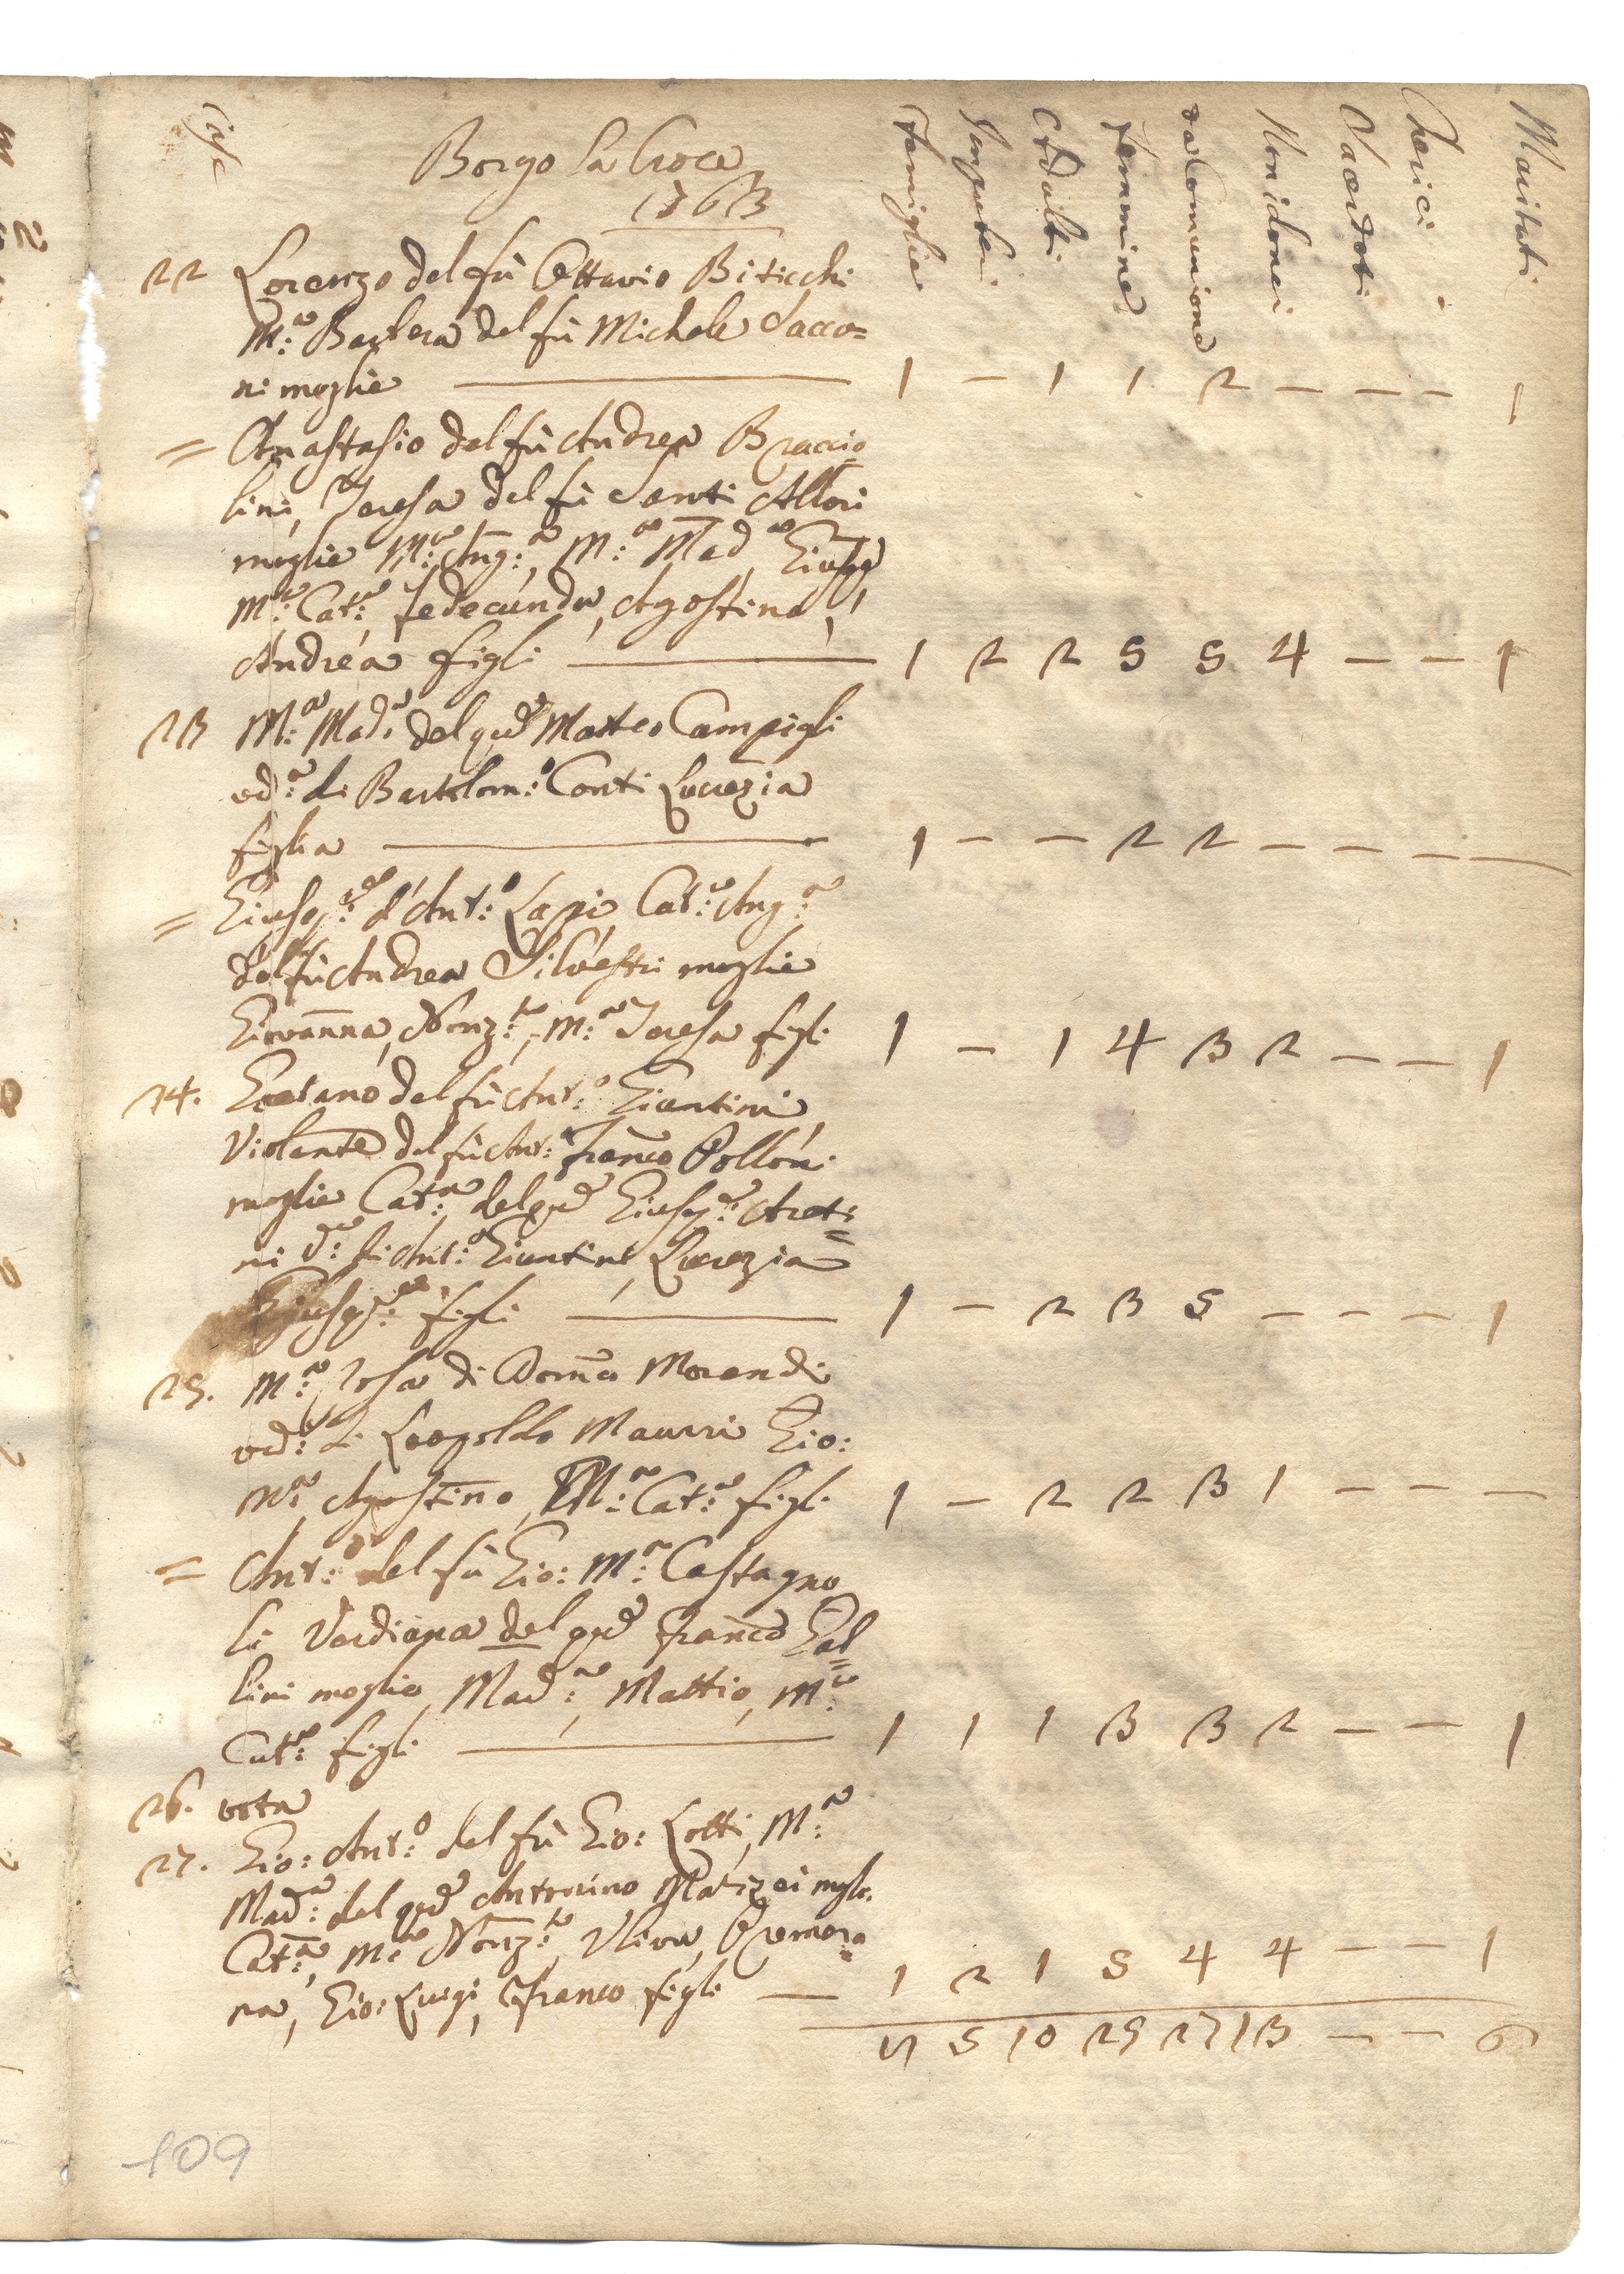 Case
Borgo la Croce
1763
Famiglie
Impuberi
Adulti
Femmine
da Comunione
Non idonei
Sacerdoti
Cherici
Maritati
22 Lorenzo del fù Ottavio Biticchi
M:a Barbera del fù Michele Sacco=
ni moglie 1 — 1 1 2 — — — 1
= Anastasio del fù Andrea Braccio=
lini, Teresa del fù Santi Allori
moglie M:a Ang:a, M:a Mad:a
M:a Cat:a, Agostino,
Andrea figli 1 2 2 5 5 4 — — 1
23 M:a Mad:a del qd Matteo Campigli
ved:a di Bartolom:o Conti Lucrezia
figlia 1 — — 2 2 — — — —
= Giusep:e d'Ant:o Lapi, Cat:a Ang:a
del fù Andrea Silvestri moglie
Giovanna, Nonz:ta, M:a Teresa figli 1 — 1 4 3 2 — — 1
24. Gaetano del fù Ant:o Giuntini
Violante del fù Ant: Franco Polloni
moglie Cat:a del qd Giusep:e Areti=
ni v:a di Ant:o Giuntini Lucrezia
Giusep:e figli 1 — 2 3 5 — — — 1
25. M:a Rosa di Domco Morandi
ved:a di Leopoldo Maurri Gio:
Na, Agostino, M:a Cat:a figli 1 — 2 2 3 1 — — —
= Ant:o del fù Gio: M:a Castagno
li Verdiana del qd Franco Gal=
lini moglie, Mad:a, Mattio, M:a
Cat:a figli 1 1 1 3 3 2 — — 1
26. vota
27. Gio: Ant:o del fù Gio: Lotti, M:a
Mad:a del qd Antonino moglie
Cat:a, M:a Nonz:ta, Uliva,
na, Gio: Luigi, Franco figli — 1 2 1 5 4 4 — — 1
5 10 25 27 13 — — 6
109